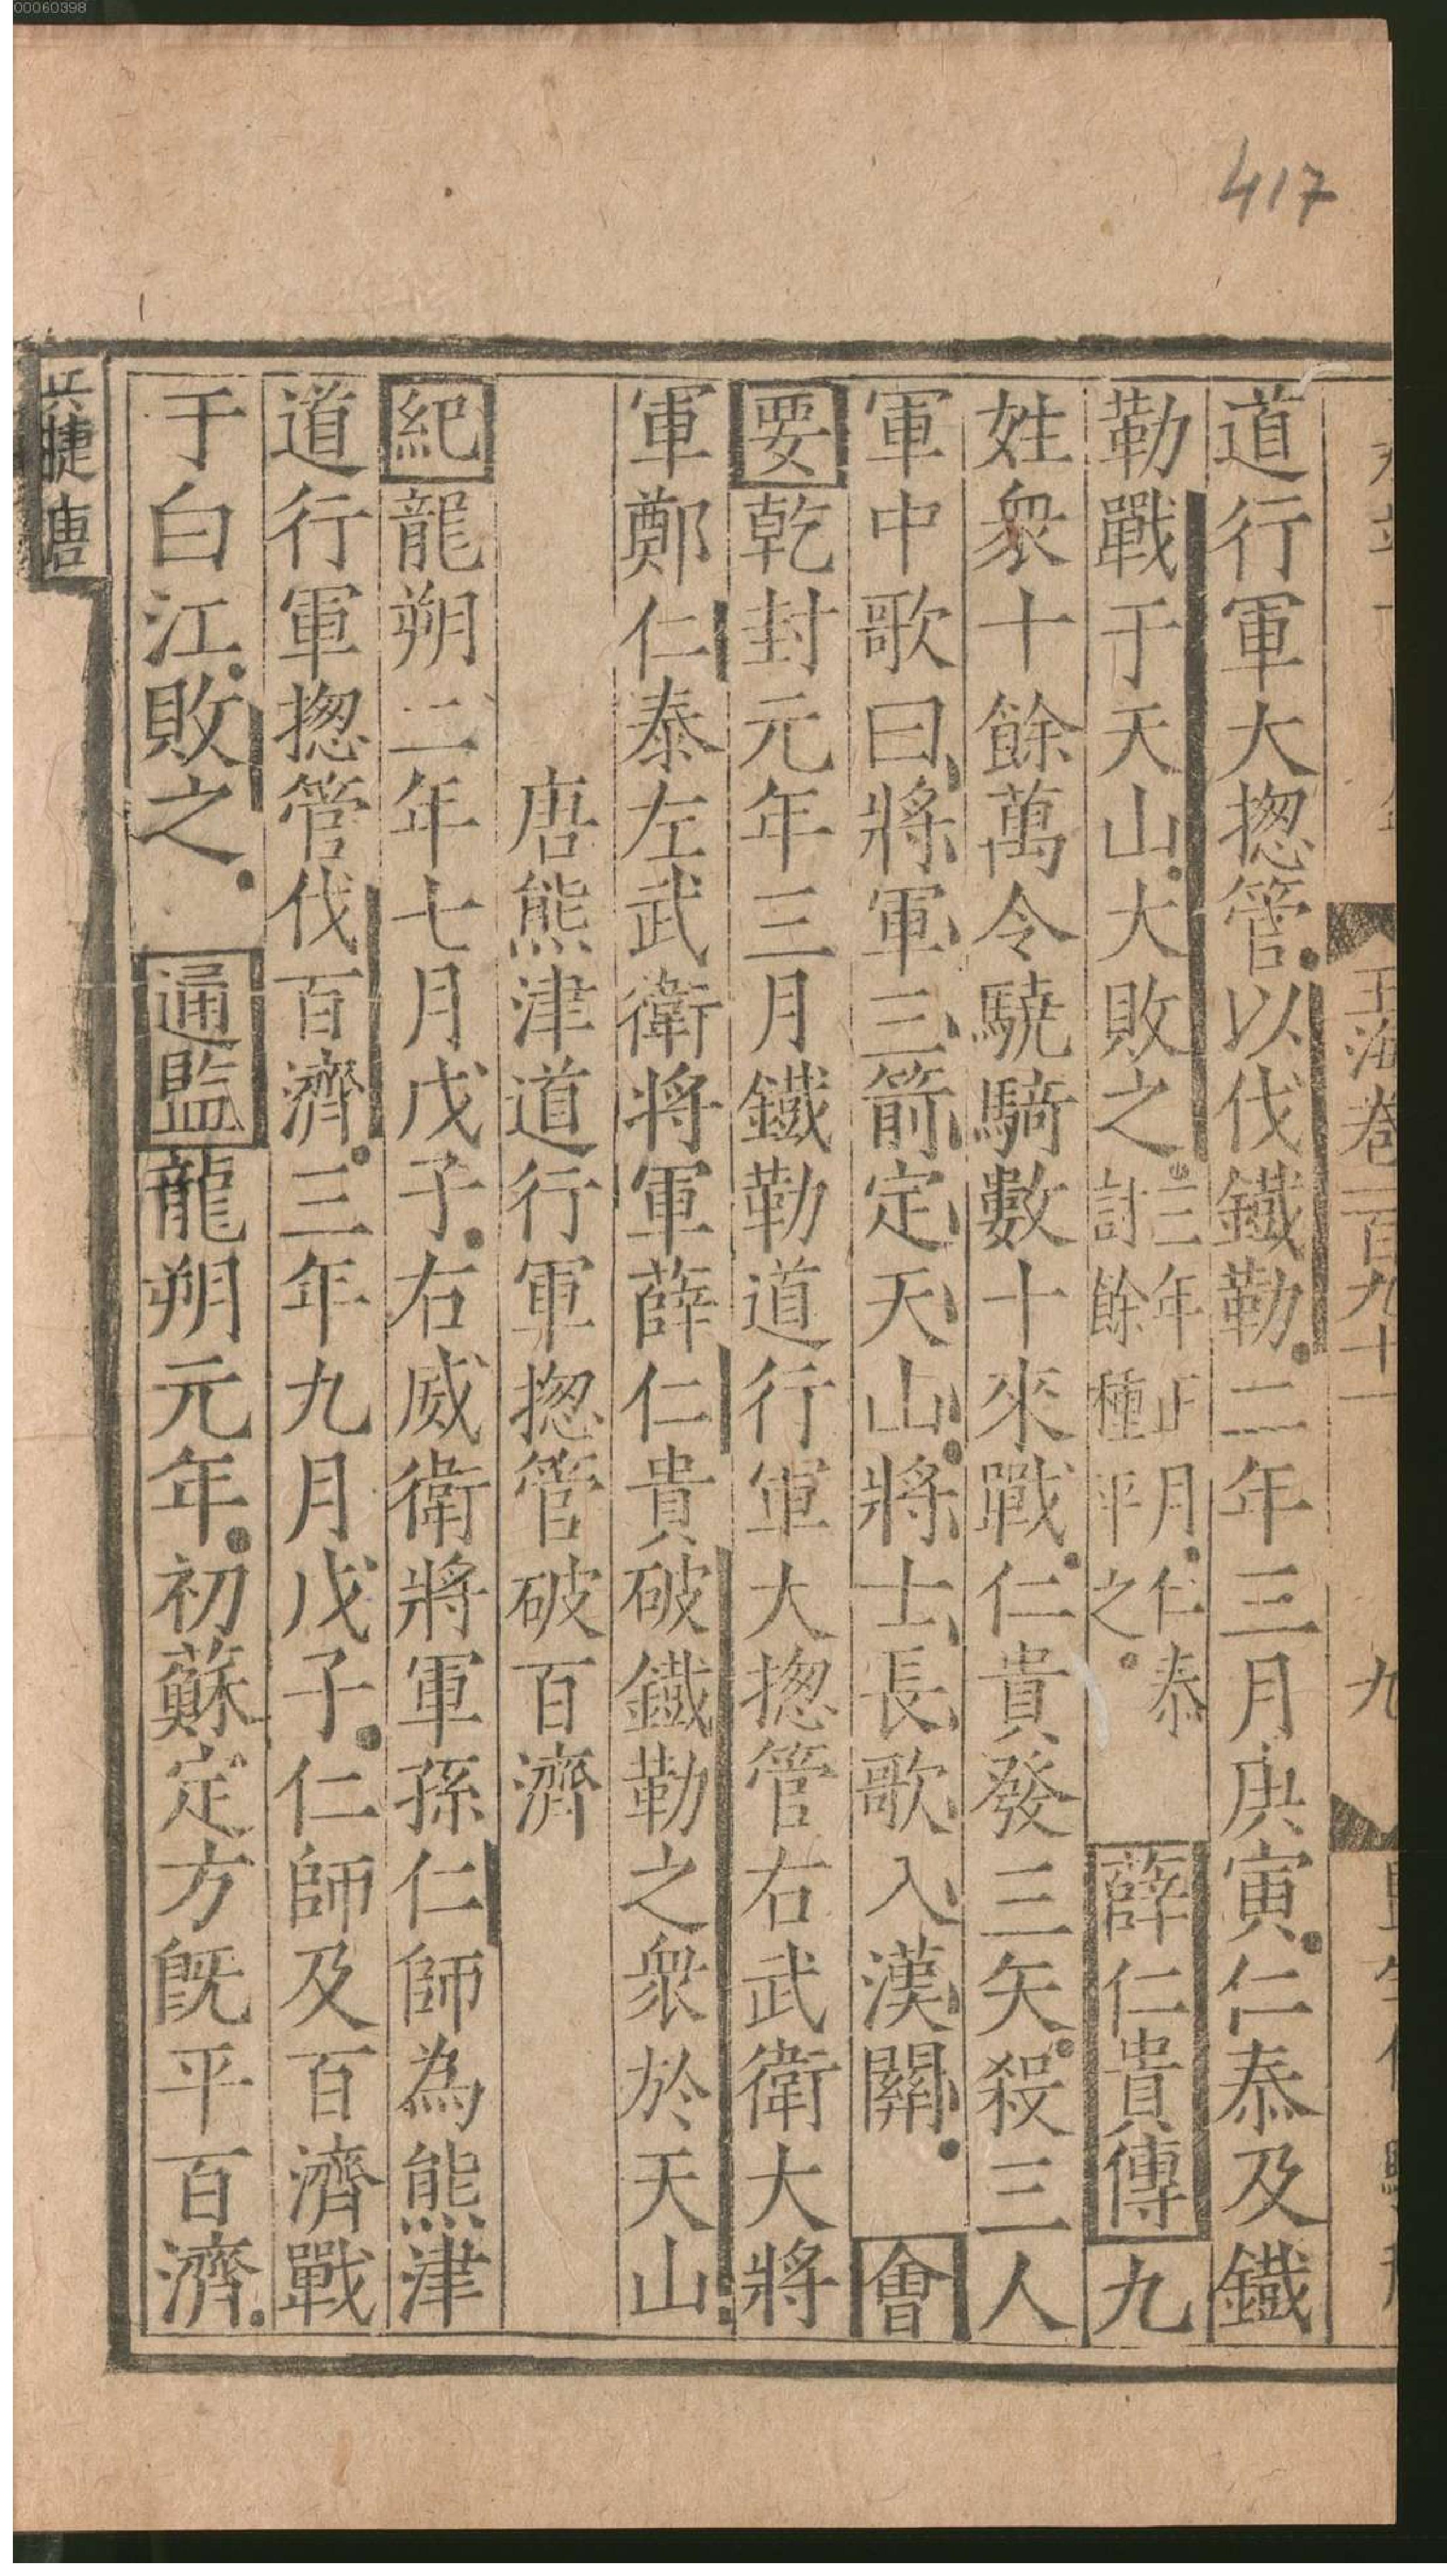 00060398
417
玉海卷一百九十一
九
道行軍大揔管以伐鐵勒二年三月庚寅仁泰及鐵
勒戰于天山大敗之三年正月仁泰討餘種平之薛仁貴傳九
姓衆十餘萬令驍騎數十來戰仁貴發三矢殺三人
軍中歌曰將軍三箭定天山將士長歌入漢關會
要乾封元年三月鐵勒道行軍大揔管右武衛大將
軍鄭仁泰左武衛將軍薛仁貴破鐵勒之衆於天山
唐熊津道行軍揔管破百濟
紀龍朔二年七月戊子右威衛將軍孫仁師為熊津
道行軍揔管伐百濟三年九月戊子仁師及百濟戰
于白江敗之通監龍朔元年初蘇定方旣平百濟
兵捷唐